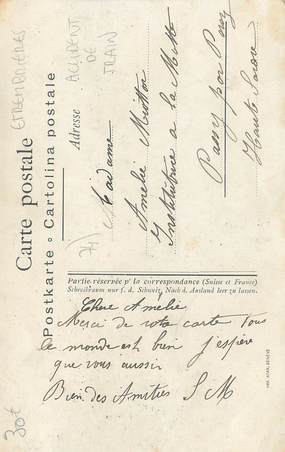 ETREMBIÈRES
ACCIDENT
DE
TRAIN
74)
Carte postale
Postkarte ◦ Cartolina postale
Adresse
Madame
Amélie Miottou
Institutrice a la Motte
Passy par
Haute Savoie
Partie réservée pr la correspondance (Suisse et France)
Schreibraum nur f. d. Schweiz, Nach d. Ausland leer zu lassen.
Chere Amélie
Merci de votre carte Tous
le monde est bien j'espère
que vous aussi
Bien des Amitiés S M
30€